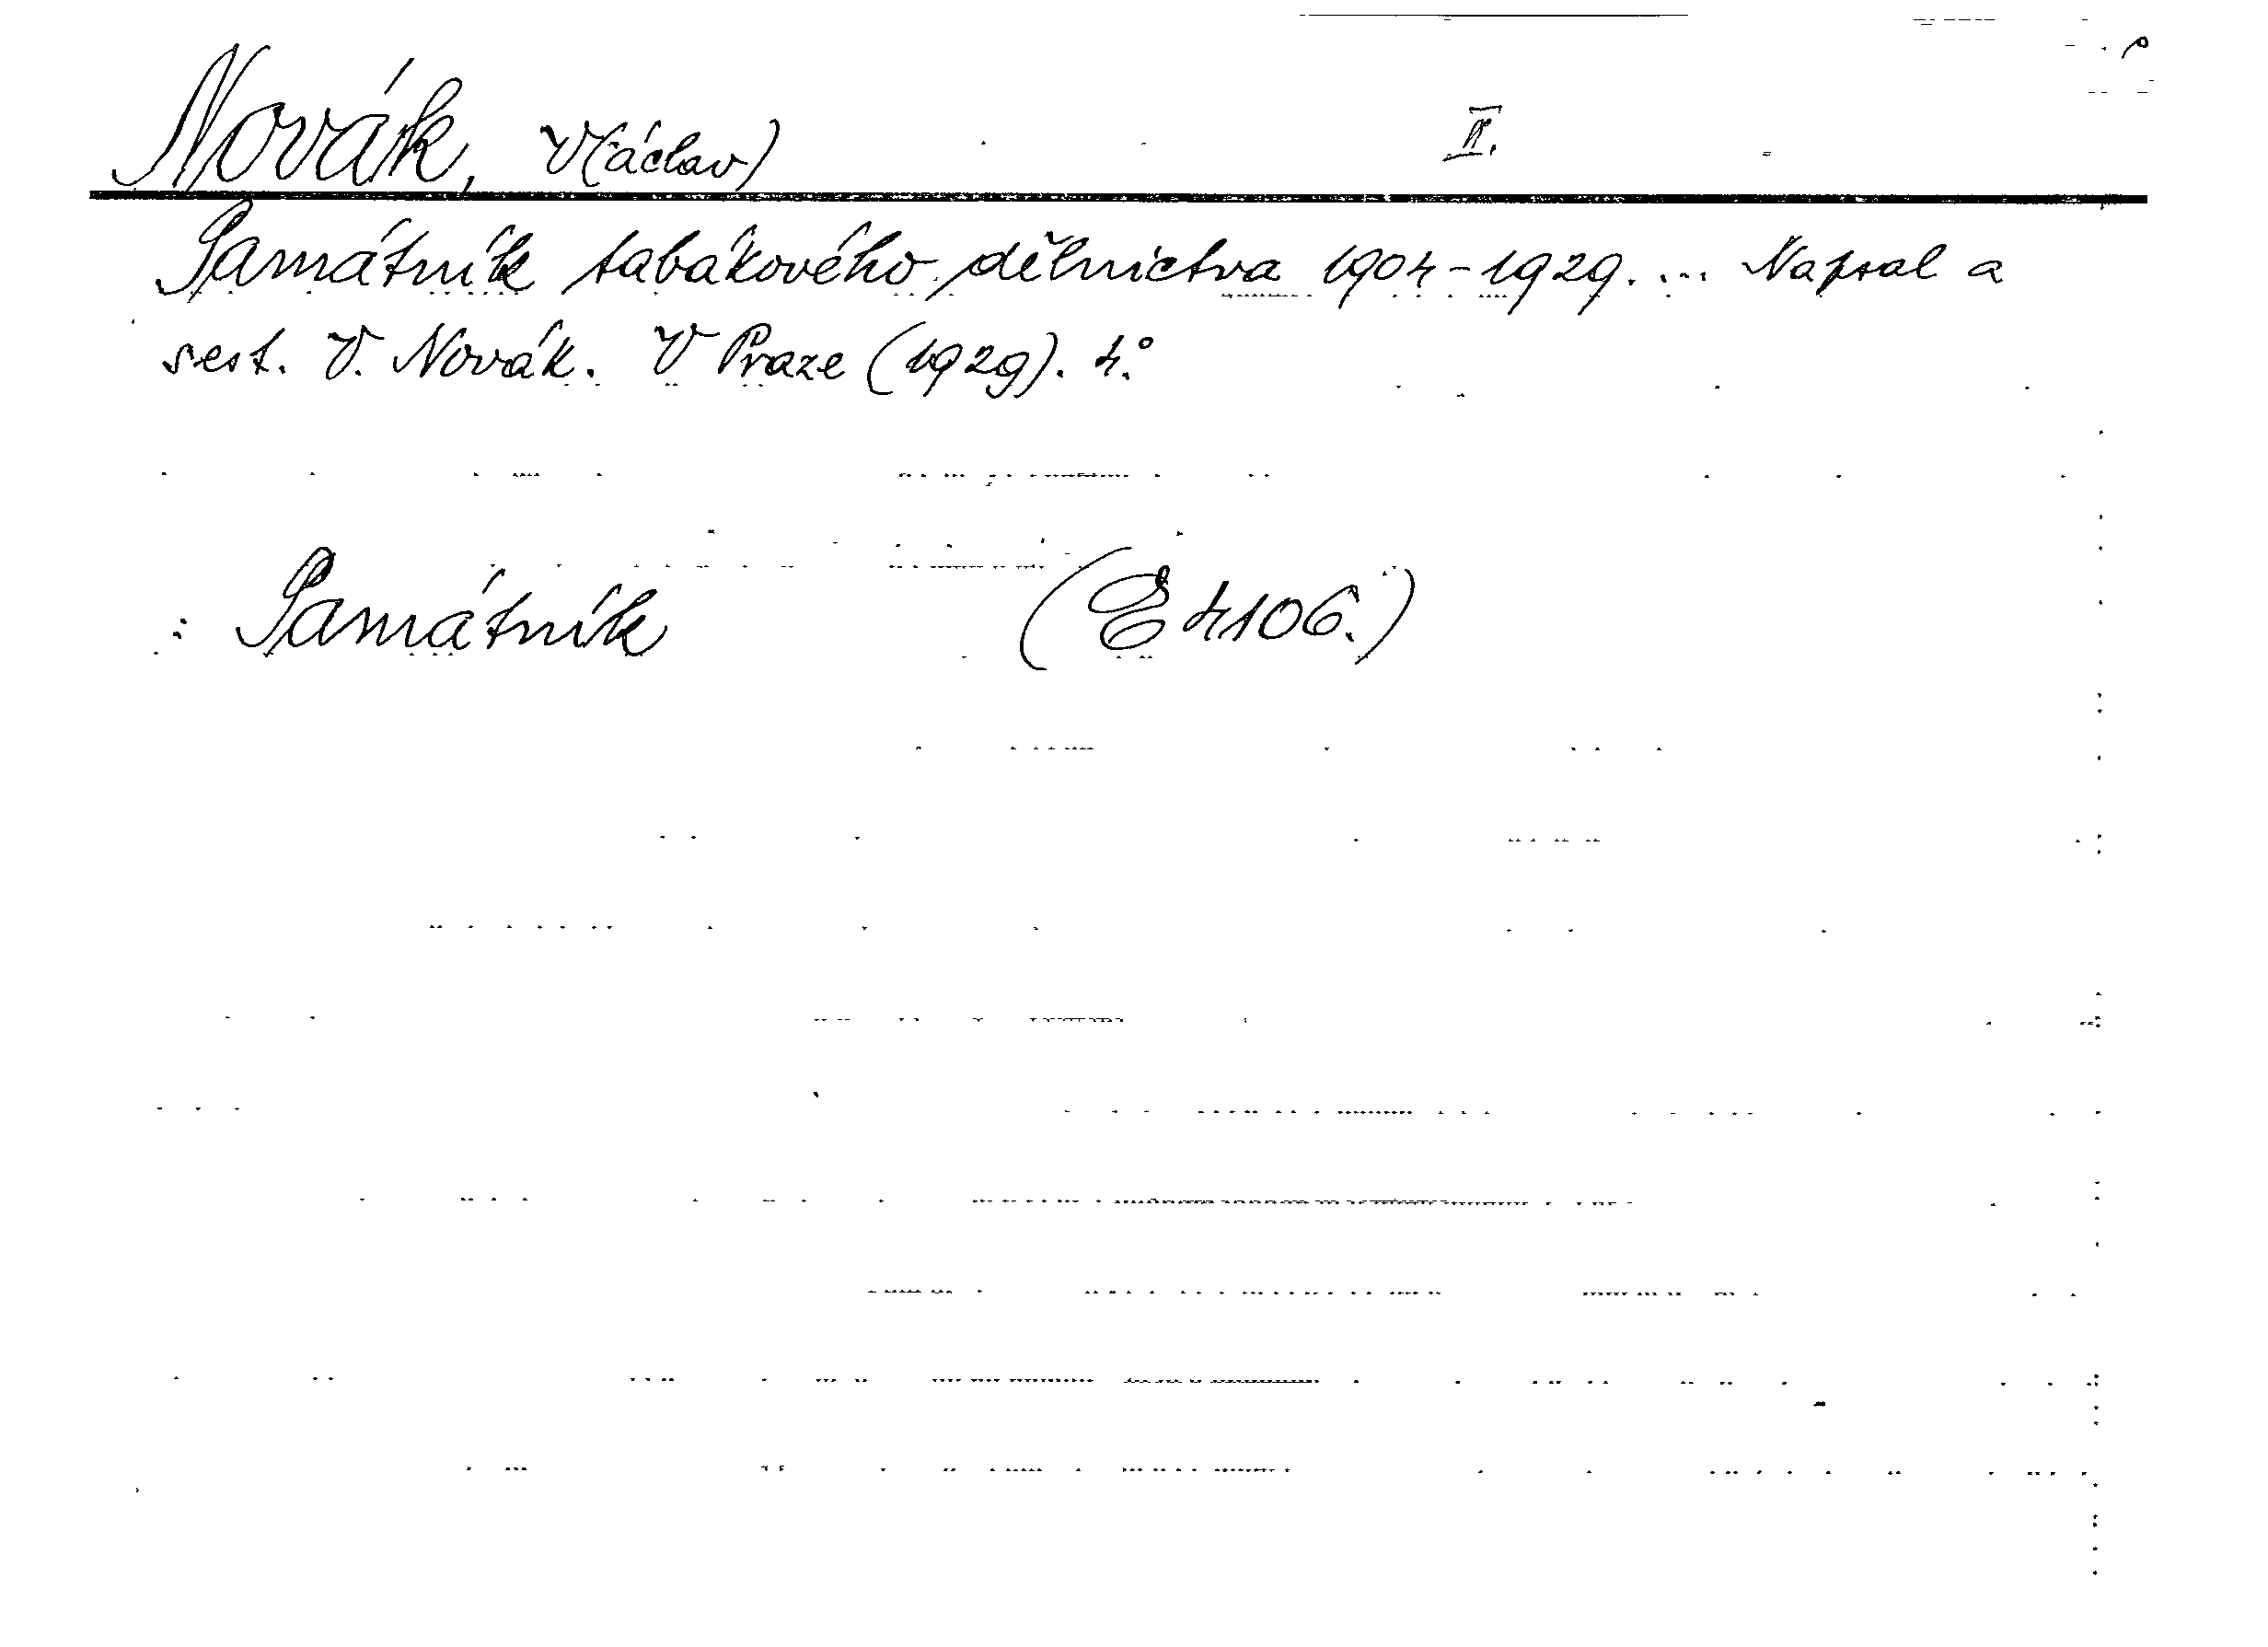 Novák, V(áclav) II.
Památník tabákového dělnictva 1904-1929. ... Napsal a
sest. V. Novák. V Praze (1929). 4.°
: Památník (E 4106.)